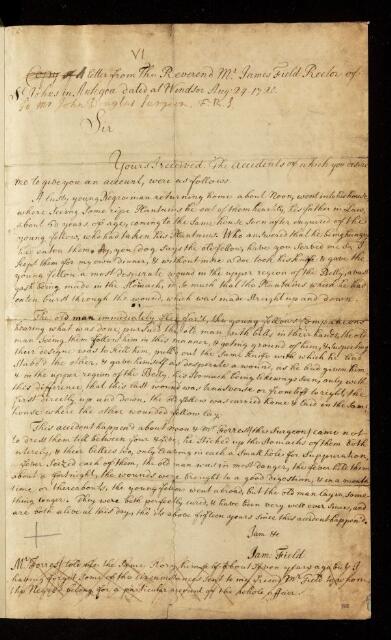 VI
Copy of A letter from The Reverend Mr. James Field Rector of
St Johns in Antegoa dated at Windsor Aug 29. 17
To Mr John Douglas Surgeon. F. R. S
Sir
Yours I received. The accidents of which you desire
me to give you an account, were as follows
A lusty young Negroman returning home about Noon, went into his house,
where seeing some ripe Plantains he eat of them heartily, his father in law,
about 60 years of age, coming to the same house soon after enquired of the
young fellow, who had taken his Plantains. Who answered that he being hungry
had eaten them. Ay, you dog says the old fellow, have you served me so, I
kept them for my own dinner, & without more adoe took his knife & gave the
young fellow a most desperate wound in the upper region of the Belly, a most
gash being made in the Stomach, in so much that the Plantains wch he had
eaten burst through the wound, which was made straight up and down.
The old man immediately fled for it, the young fellows companions
hearing what was done, pursued the old man with bills in their hands, the old
man seeing them follow him in this manner, & getting ground of him, & suspecting
their design was to kill him, pull'd out the same knife with which he had
stabb'd the other, & gave himself as desperate a wound, as he had given him,
& in the upper region of the Belly, his Stomach being likewise seen, only with
this difference that this last wound was transverse or from left to right, the
first directly up and down, the old fellow was carried home & laid in the same
house where the other wounded fellow lay.
This accident happen'd about noon & Mr Forrest (the Surgeon) came not
to dress them till between four & five, he stitched up the Stomachs of them both
intirely, & their bellies too, only leaving in each a small hole for suppuration,
a fever seized each of them, the old man was in most danger, the fever left them
about a fortnight, the wounds were brought to a good digestion, & in a months
time or thereabouts, the young fellow went abroad, but the old man lay some
thing longer. They were both perfectly cured, & have been very well ever since, and
are both alive at this day, tho' tis above fifteen years since this accident happen'd.
I am &c
Jam: Field
Mr Forrest told me the same story himself about years ago but I
having forgot some of the circumstances sent to my friend Mr Field to whom
the Negroes belong for a particular account of the whole affair.